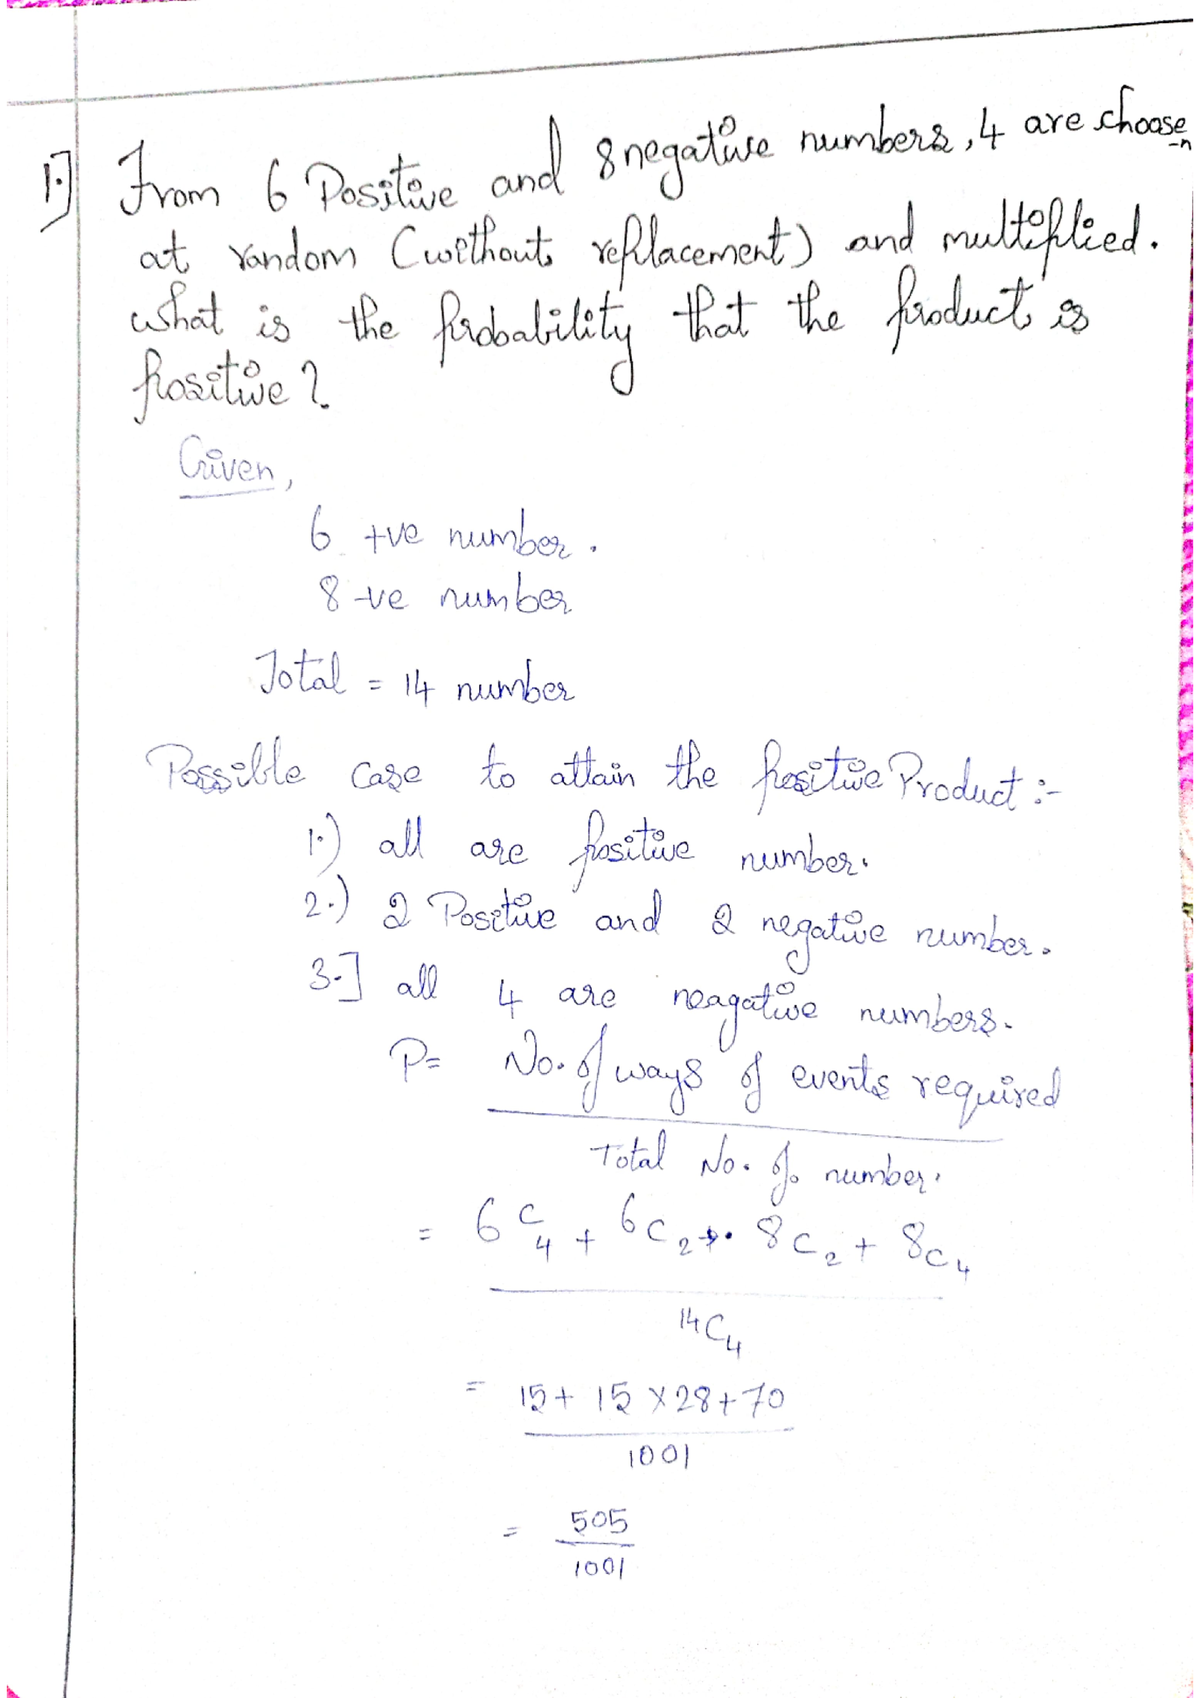 1.] From 6 Positive and 8 negative numbers, 4 are choose
-n
at random (without replacement) and multiplied.
what is the probability that the product is
positive?
Given,
6 +ve number.
8 -ve number
Total = 14 number
Possible case to attain the positive Product :-
1.) all are positive number.
2.) 2 Positive and 2 negative number.
3.] all 4 are neagative numbers.
P= No. of ways of events required
Total No. of number.
= 6C4 + 6C2 . 8C2 + 8C4
14C4
= 15 + 15 x 28 + 70
1001
= 505
1001